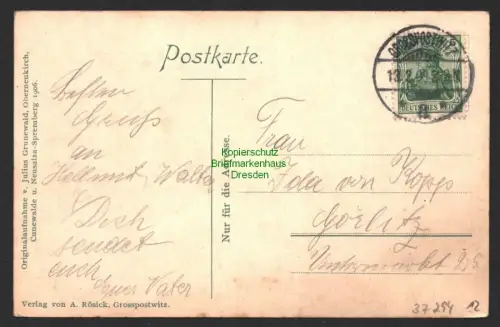 Postkarte.
Originalaufnahme v. Julius Grunewald, Obernenkirch,
Cunewalde u. Neusalza-Spremberg 1906.
Besten
Gruss
an
Hellmut, Walter
Doch
sendet
euch
Euer Vater
Verlag von A. Rösick, Grosspostwitz.
Nur für die Adresse.
Kopierschutz
Briefmarkenhaus
Dresden
GROSSPOSTWITZ
13.2.
DEUTSCHES REICH
Frau
Ida von Kopp
Görlitz
Untermarkt
37254 12